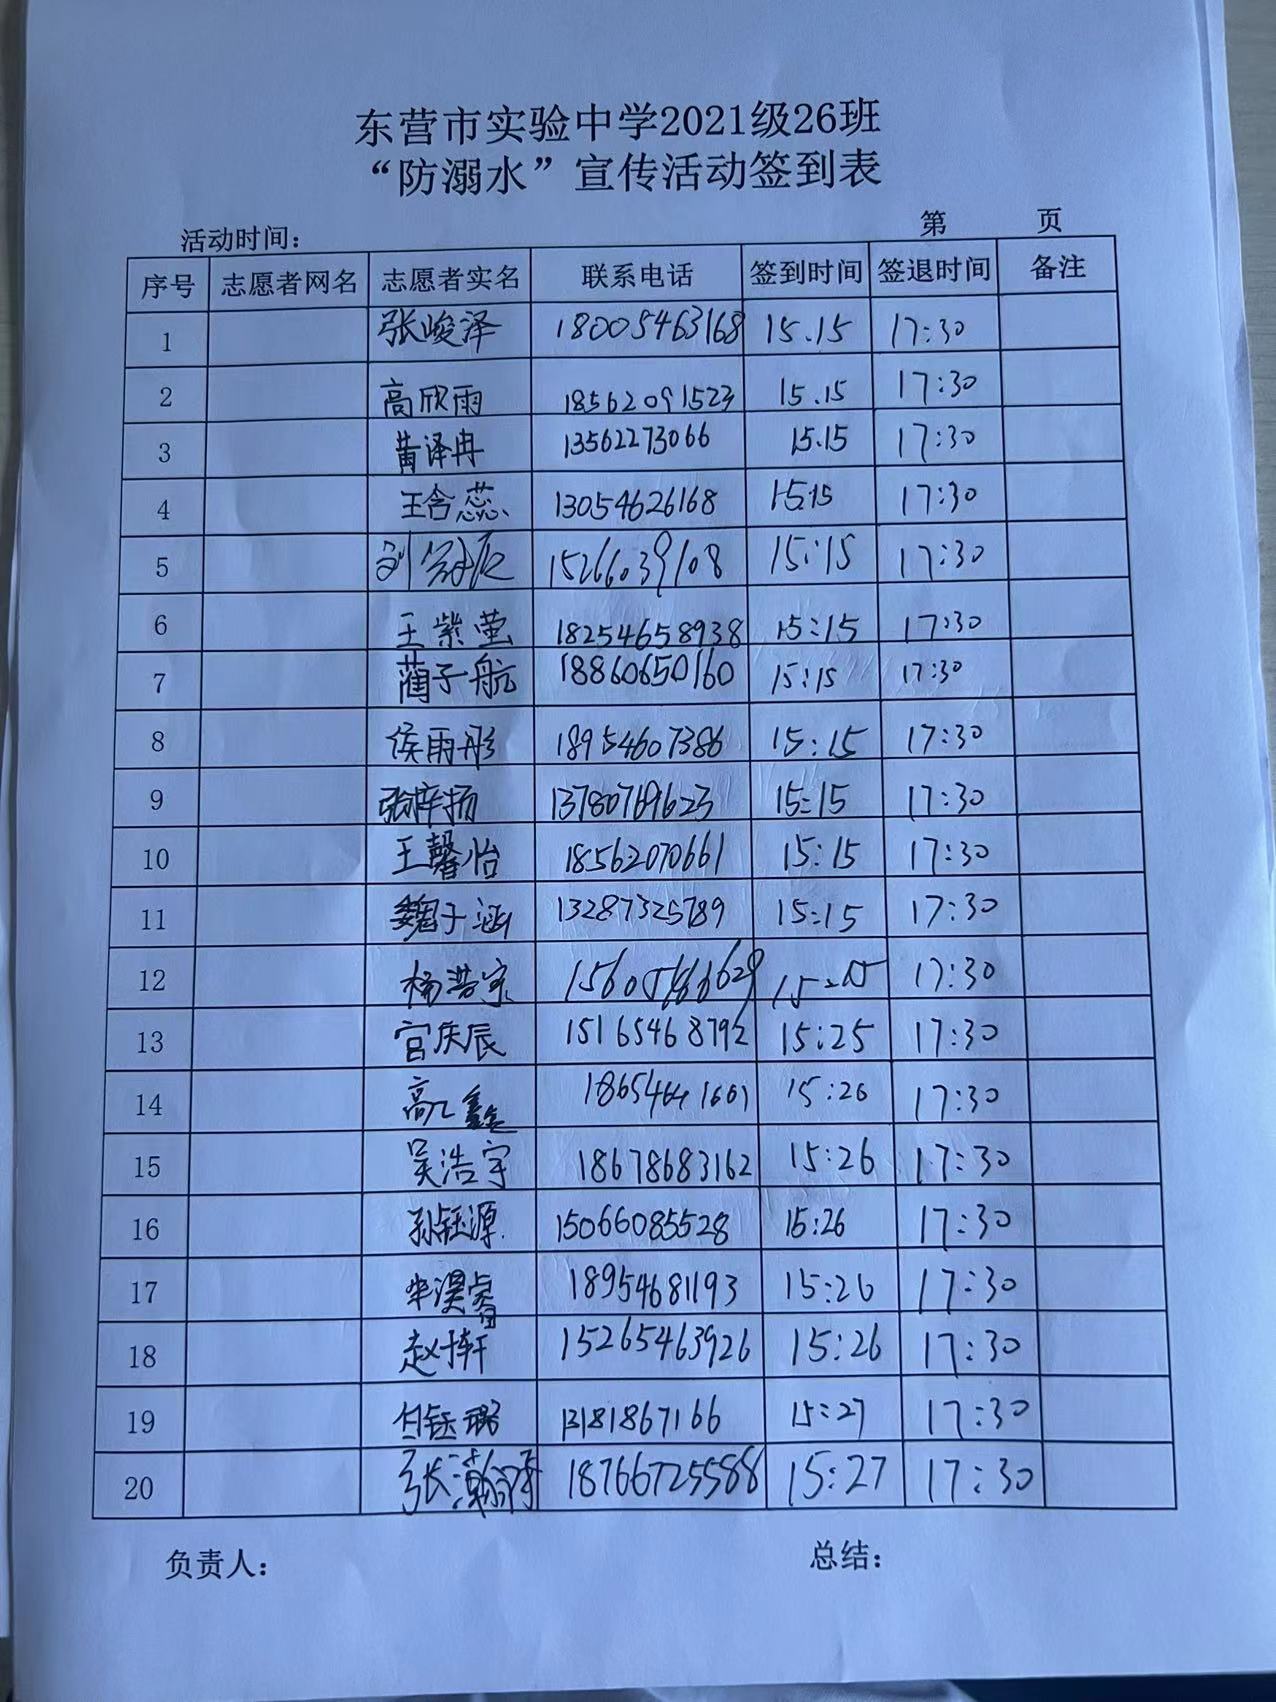 东营市实验中学2021级26班
“防溺水”宣传活动签到表
活动时间： 第 页
序号 志愿者网名 志愿者实名 联系电话 签到时间 签退时间 备注
1 张峻泽 18005463168 15.15 17:30
2 高欣雨 18562091523 15.15 17:30
3 黄泽冉 13562273066 15.15 17:30
4 王含蕊 13054626168 15:15 17:30
5 刘 15266039108 15:15 17:30
6 王紫萤 18254658938 15:15 17:30
7 蔺子航 18860650160 15:15 17:30
8 侯雨彤 18954607386 15:15 17:30
9 张梓扬 13780769623 15:15 17:30
10 王馨怡 18562070661 15:15 17:30
11 魏子涵 13287325789 15:15 17:30
12 杨浩宇 15:15 17:30
13 宫庆辰 15165468792 15:25 17:30
14 高 鑫 15:26 17:30
15 吴浩宇 18678683162 15:26 17:30
16 孙钰源 15066085528 15:26 17:30
17 淏睿 18954681193 15:26 17:30
18 赵 轩 15265463926 15:26 17:30
19 钰璐 13181867166 15:27 17:30
20 张瀚 18766725588 15:27 17:30
负责人： 总结：